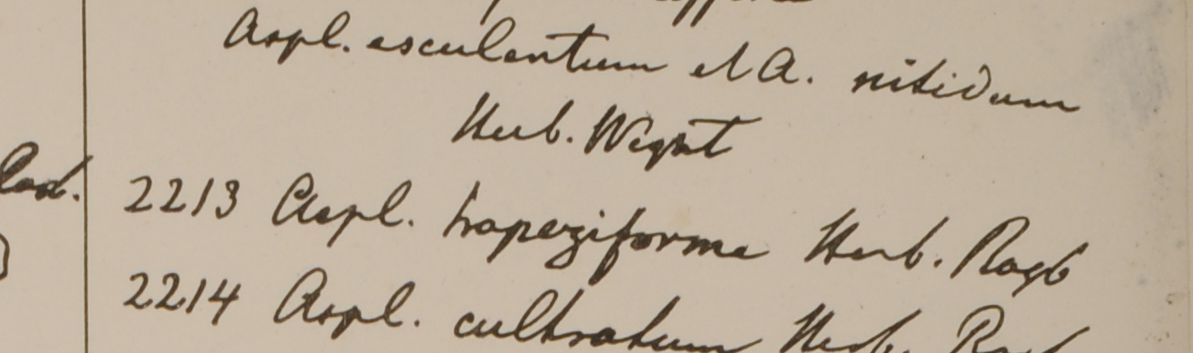 Aspl. esculentum et A. nitidum
Herb. Wight
2213 Aspl. trapeziforme Herb. Roxb
2214 Aspl. cultratum Herb. Roxb